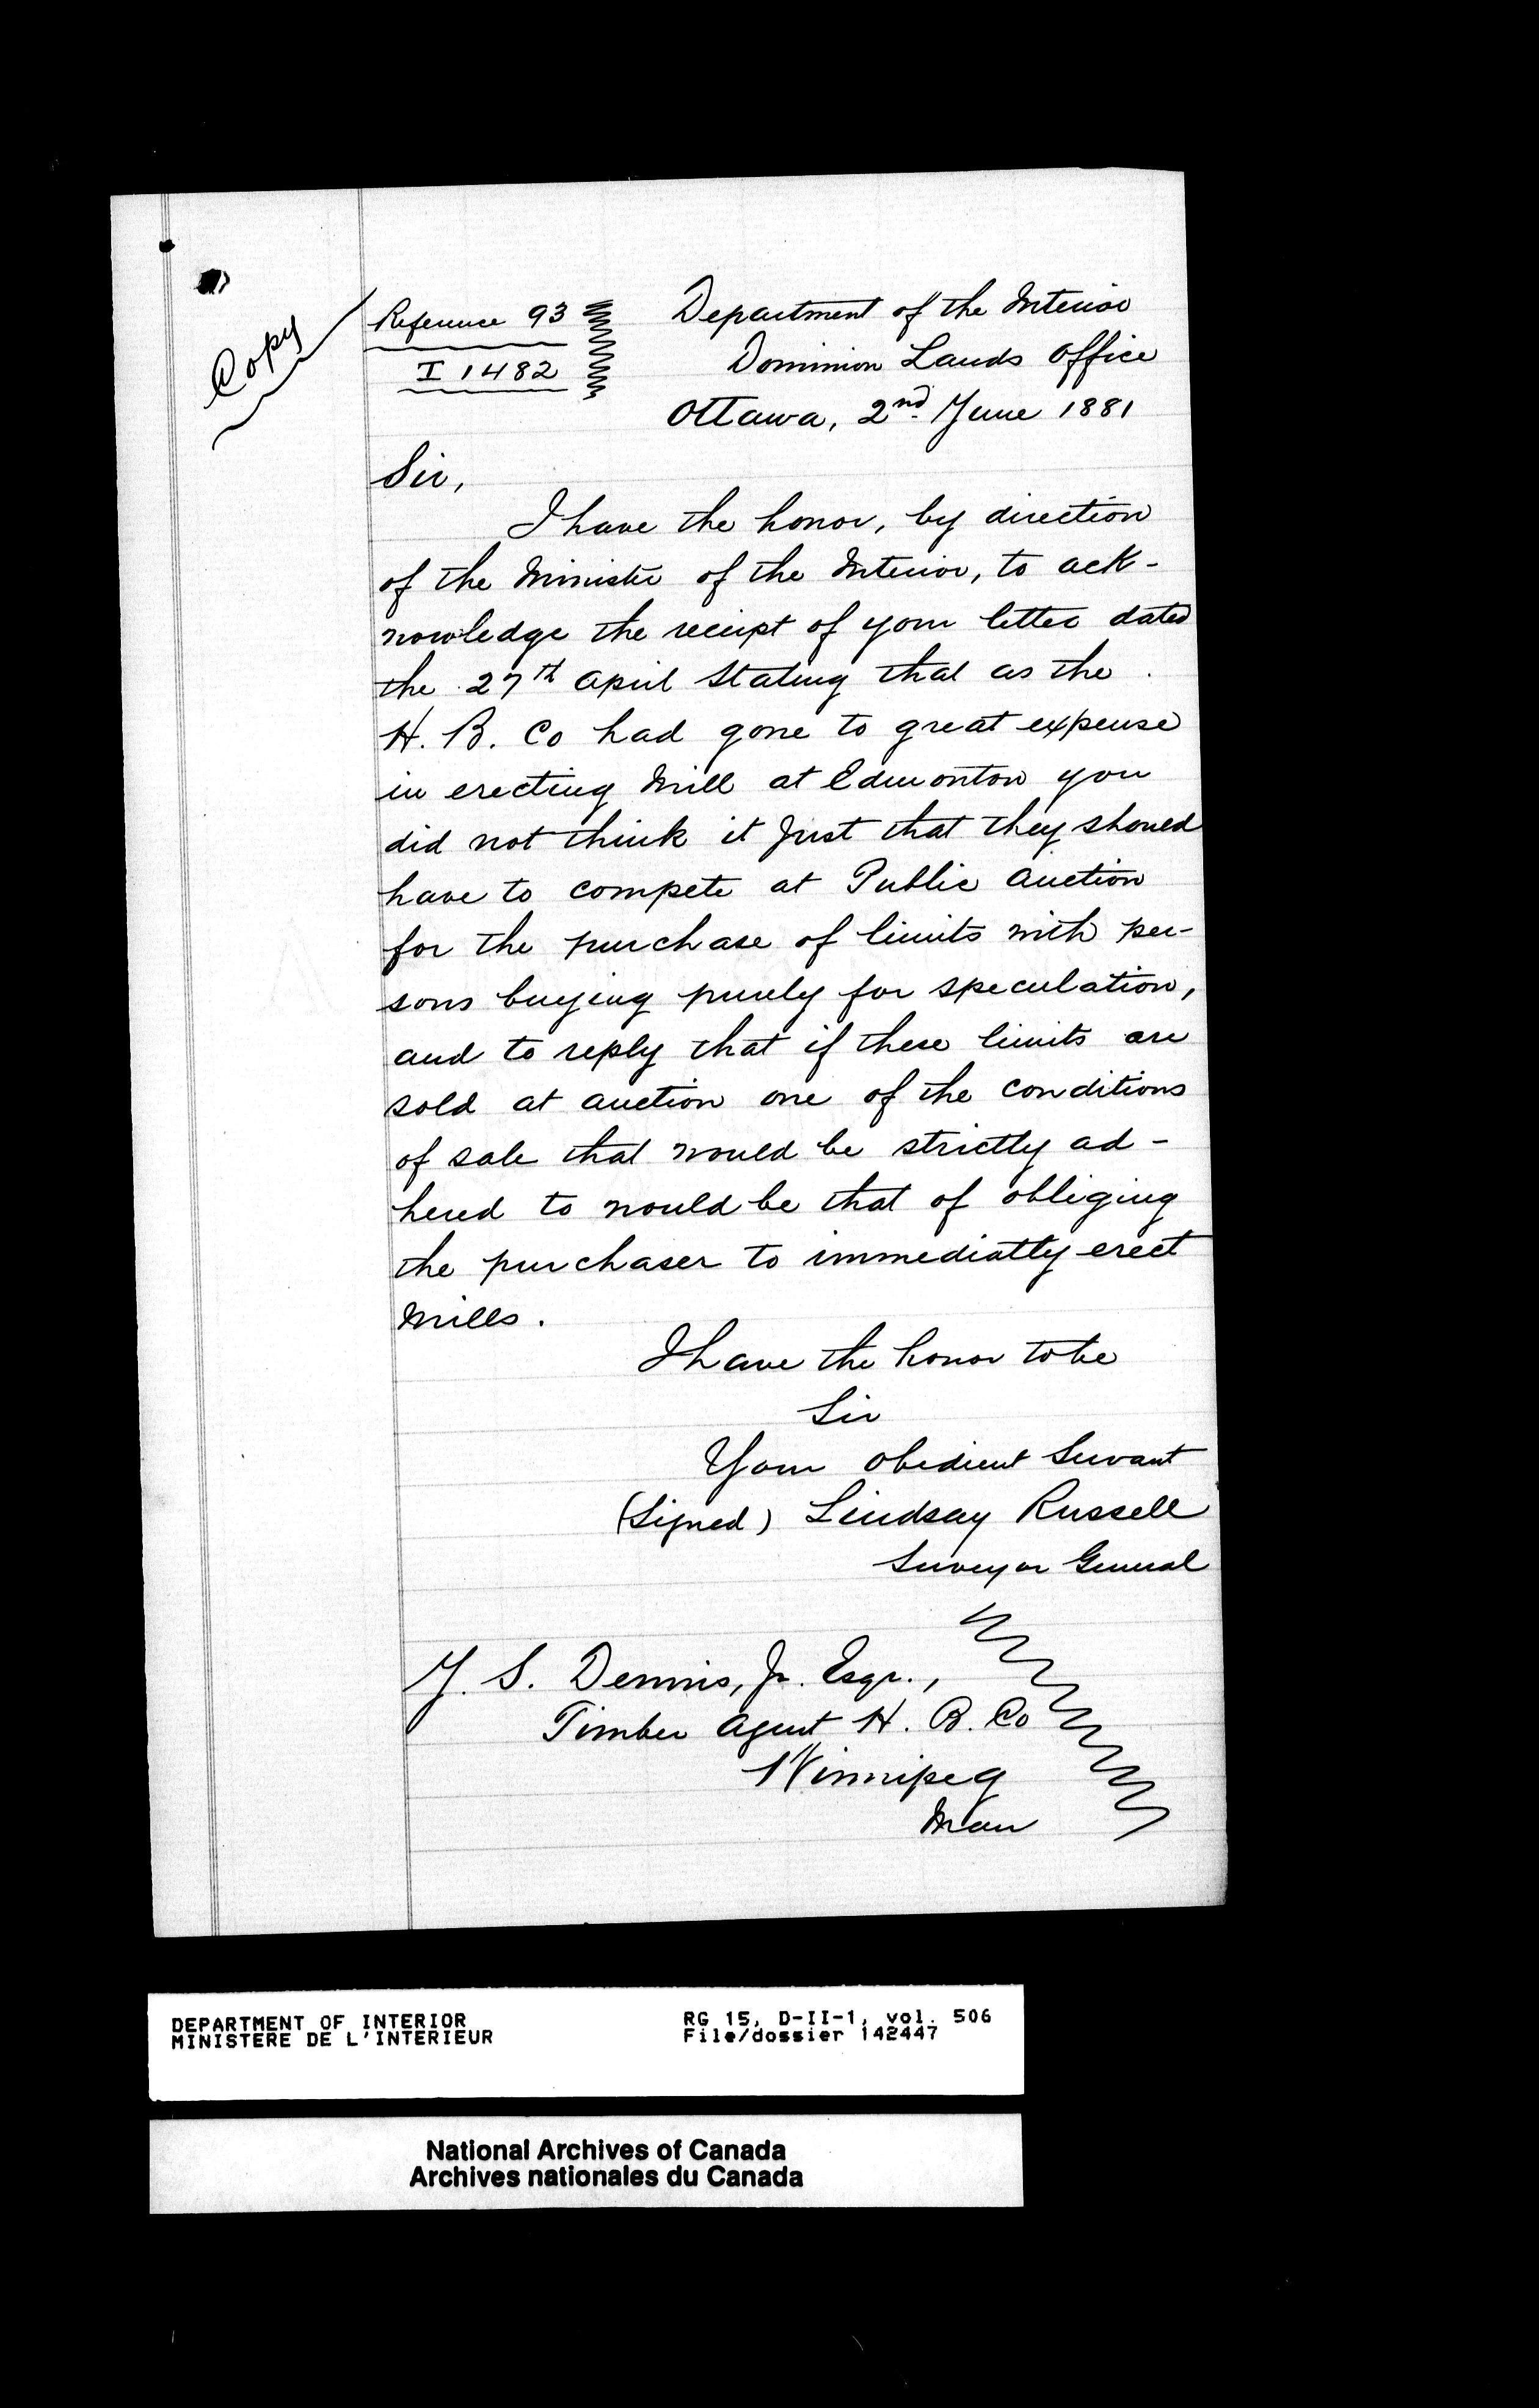 Copy
Reference 93
I 1482
Department of the Interior
Dominion Lands Office
Ottawa, 2nd. June 1881
Sir,
I have the honor, by direction
of the Minister of the Interior, to ack-
nowledge the receipt of your letter dated
the 27th April Stating that as the
H. B. Co had gone to great expense
in erecting Mill at Edmonton you
did not think it Just that they should
have to compete at Public Auction
for the purchase of limits with per-
sons buying purely for speculation,
and to reply that if these limits are
sold at auction one of the conditions
of sale that would be strictly ad-
hered to would be that of obliging
the purchaser to immediatly erect
Mills.
I have the honor to be
Sir
Your Obedient Servant
(Signed) Lindsay Russell
Surveyor General
J. S. Dennis, Jr. Esqr.,
Timber Agent H. B. Co
Winnipeg
Man
DEPARTMENT OF INTERIOR
MINISTERE DE L'INTERIEUR
RG 15, D-II-1, vol. 506
File/dossier 142447
National Archives of Canada
Archives nationales du Canada